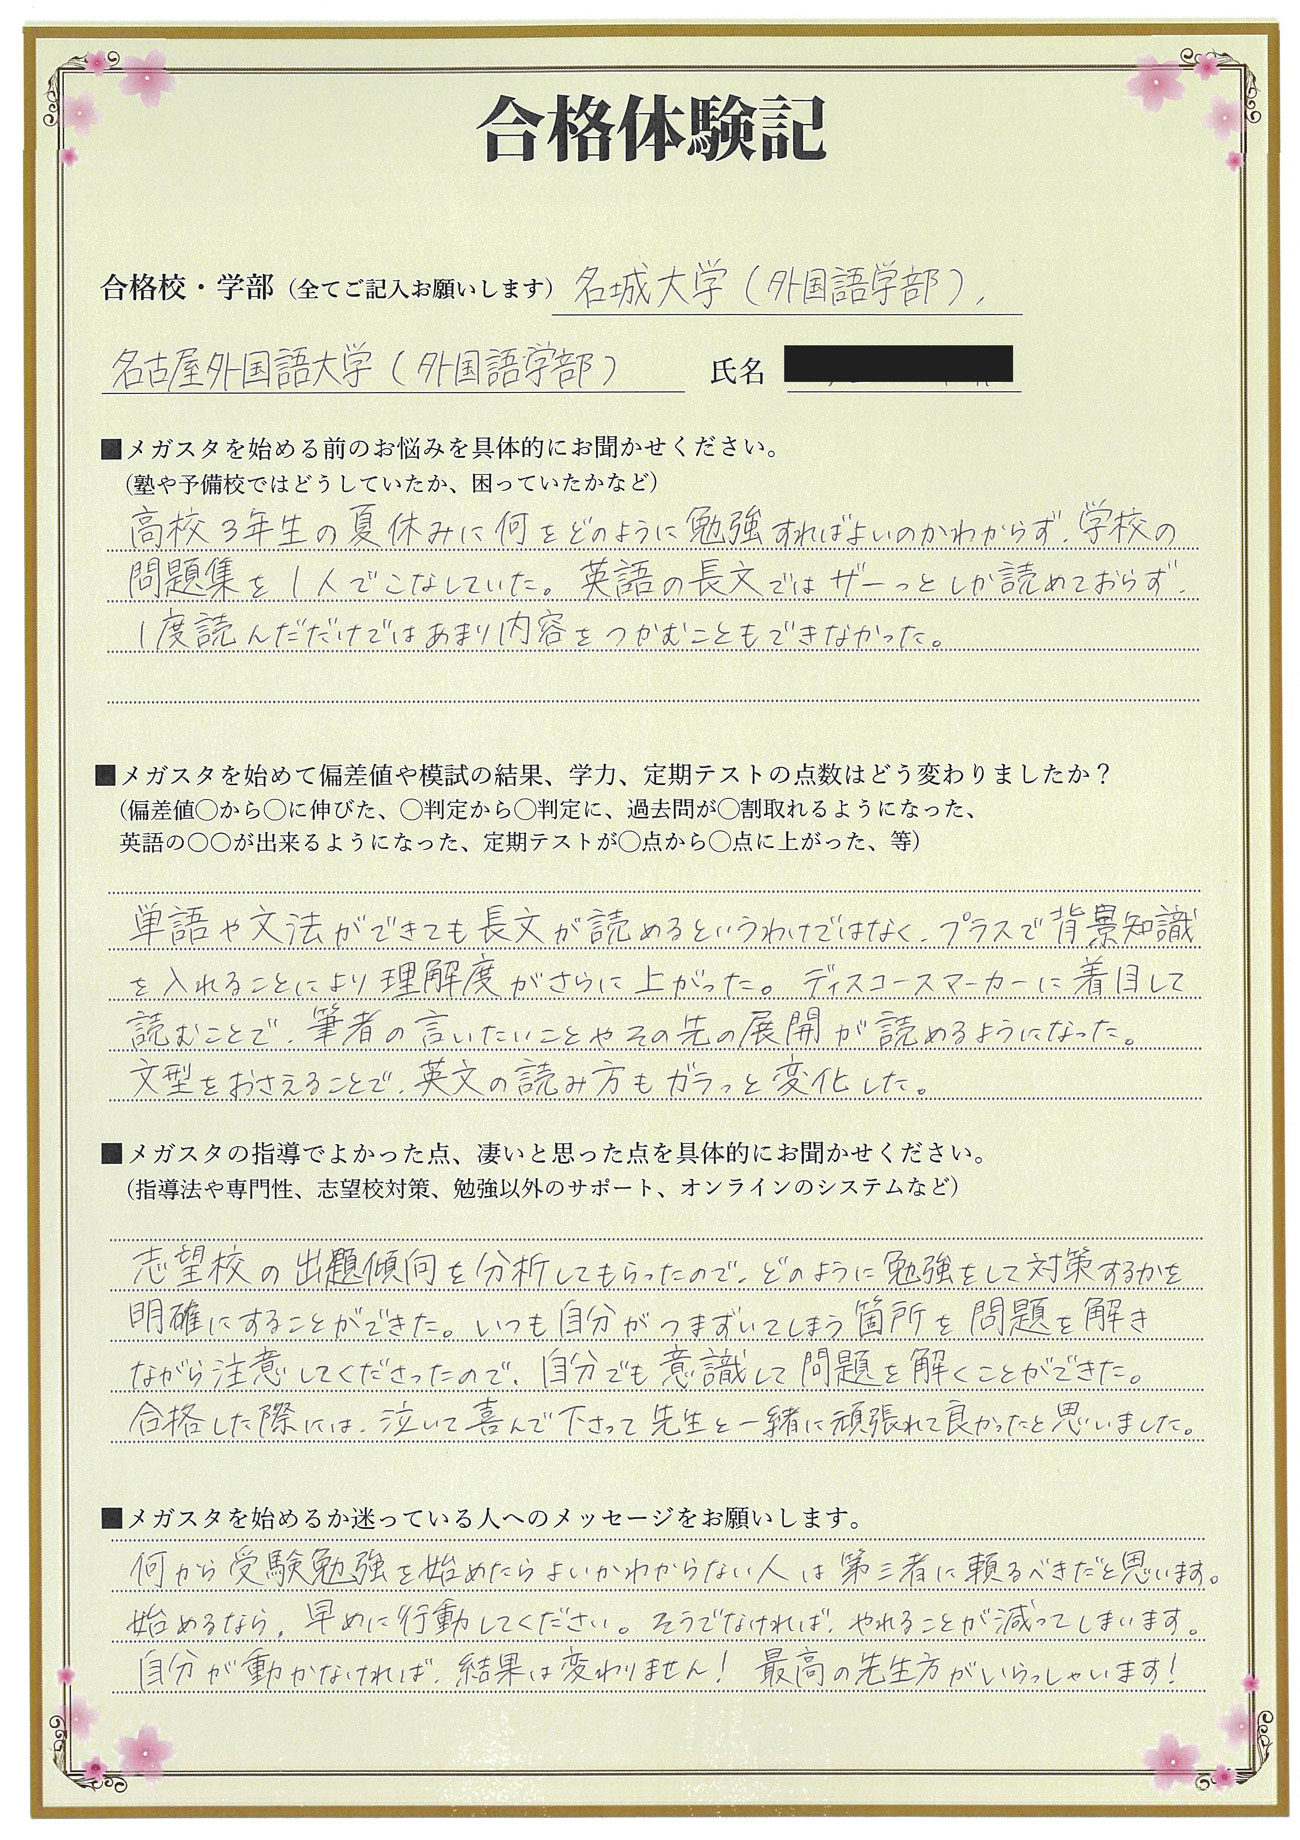 合格体験記
合格校・学部（全てご記入お願いします）名城大学（外国語学部）、
名古屋外国語大学（外国語学部） 氏名
■メガスタを始める前のお悩みを具体的にお聞かせください。
（塾や予備校ではどうしていたか、困っていたかなど）
高校3年生の夏休みに何をどのように勉強すればよいのかわからず、学校の
問題集を1人でこなしていた。英語の長文ではザーっとしか読めておらず、
1度読んだだけではあまり内容をつかむこともできなかった。
■メガスタを始めて偏差値や模試の結果、学力、定期テストの点数はどう変わりましたか？
（偏差値〇から〇に伸びた、〇判定から〇判定に、過去問が〇割取れるようになった、
英語の〇〇が出来るようになった、定期テストが〇点から〇点に上がった、等）
単語や文法ができても長文が読めるというわけではなく、プラスで背景知識
を入れることにより理解度がさらに上がった。ディスコースマーカーに着目して
読むことで、筆者の言いたいことやその先の展開が読めるようになった。
文型をおさえることで、英文の読み方もガラっと変化した。
■メガスタの指導でよかった点、凄いと思った点を具体的にお聞かせください。
（指導法や専門性、志望校対策、勉強以外のサポート、オンラインのシステムなど）
志望校の出題傾向を分析してもらったので、どのように勉強をして対策するかを
明確にすることができた。いつも自分がつまずいてしまう箇所を問題を解き
ながら注意してくださったので、自分でも意識して問題を解くことができた。
合格した際には、泣いて喜んで下さって先生と一緒に頑張れて良かったと思いました。
■メガスタを始めるか迷っている人へのメッセージをお願いします。
何から受験勉強を始めたらよいかわからない人は第三者に頼るべきだと思います。
始めるなら、早めに行動してください。そうでなければ、やれることが減ってしまいます。
自分が動かなければ、結果は変わりません！最高の先生方がいらっしゃいます！